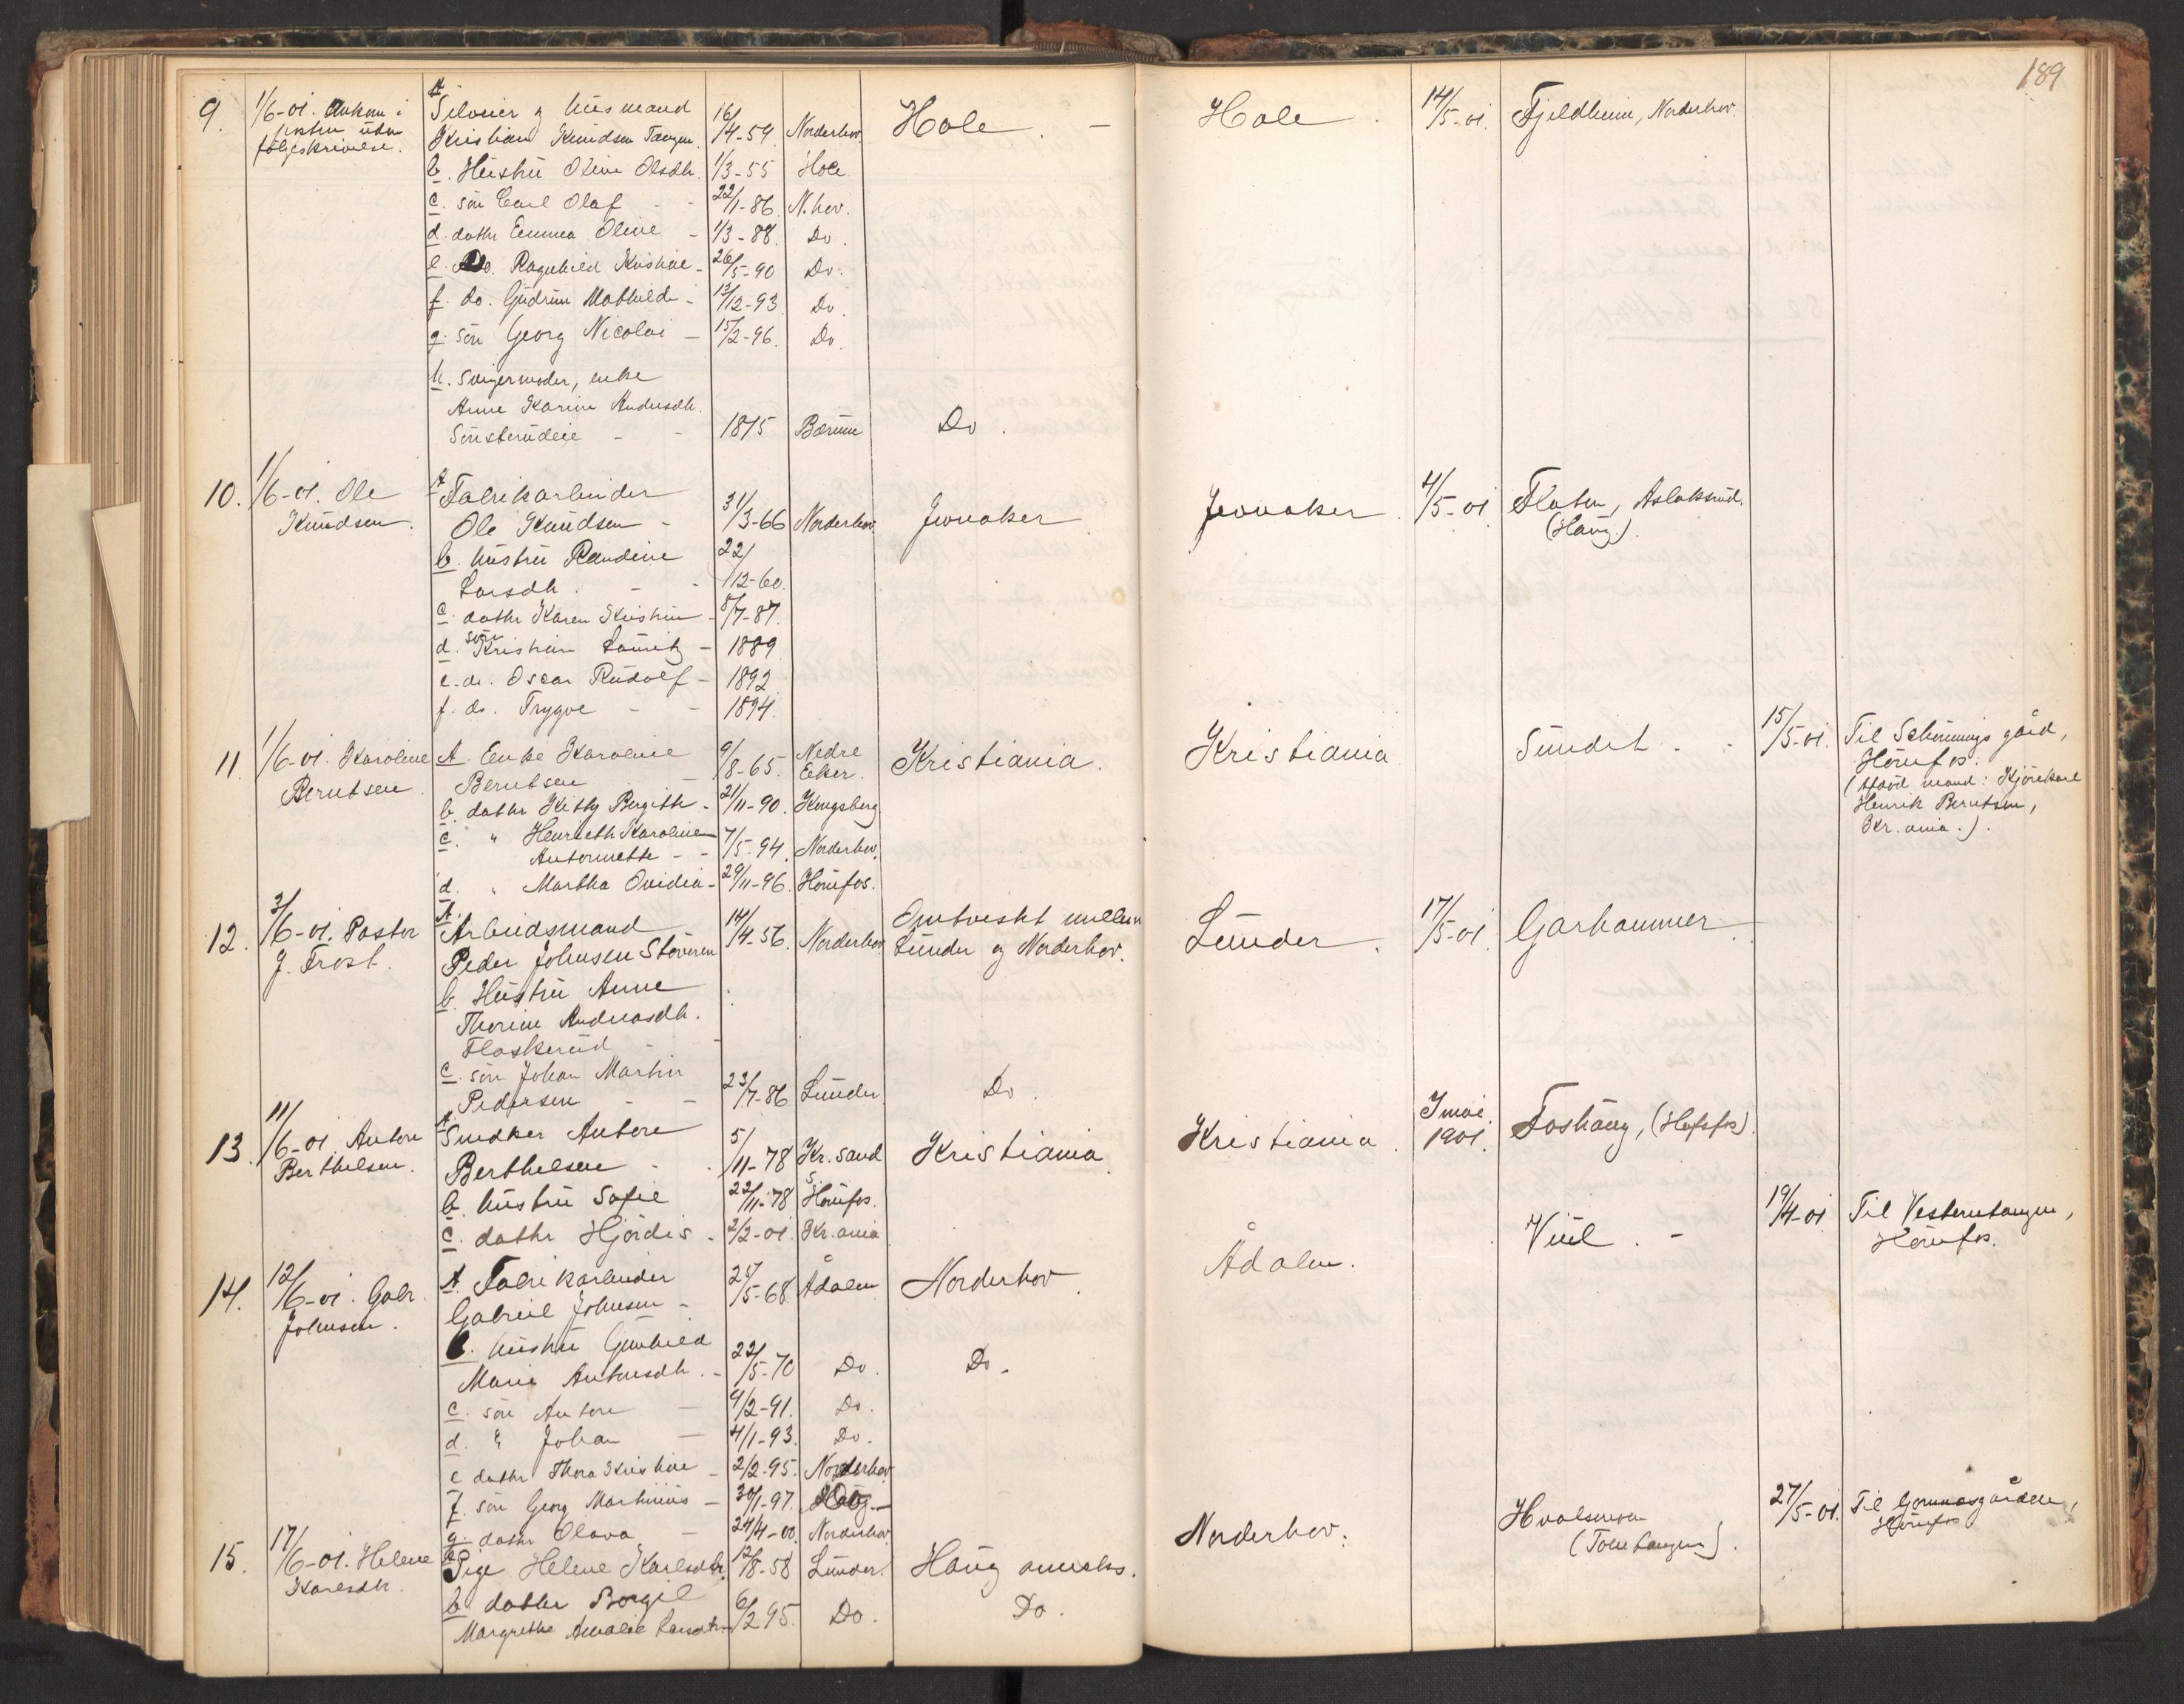 189
9. 1/6-01. Ankom i
posten uden
følgeskrivelse.
A Seloeier og husmand
Kristian Knudsen Tangen. 16/4-59. Norderhov. Hole. - Hole. 14/5-01. Fjeldheim, Norderhov.
b. Hustru Oline Olsdtr. 1/3-55 Hole
c. søn Carl Olaf - - 22/1-86. N.hov.
d. datter Emma Oline - 1/3-88. Do.
e. Do. Ragnhild Kristine - 26/5-90 Do.
f. do. Gudrun Mathilde - 13/12-93. Do.
g. søn Georg Nicolai - 15/2-96. Do.
h. Svigermoder, enke
Anne Karine Andersdtr.
Sønsterudeie - - 1815 Bærum Do.
10. 1/6-01. Ole
Knudsen.
A Fabrikarbeider
Ole Knudsen - 31/3-66 Norderhov. Jevnaker Jevnaker. 4/5-01 Flaten, Aslaksrud.
(Haug).
b. hustru Randine
Larsdtr. - - 22/12-60.
c. datter Karen Kristine - 8/7-87.
d. søn Kristian Lauritz - 1889
e. do. Oscar Rudolf - 1892
f. do. Trygve - - 1894.
11. 1/6-01. Karoline
Berntsen.
A. Enke Karoline
Berntsen - 9/8-65. Nedre
Eker. Kristiania. Kristiania Sundet - - 15/5-01. Til Schønnings gård,
Hønefos.
(Afdød mand: Kjørekarl
Henrik Berntsen,
Kr.ania.).
b. datter Kitty Birgitte - 21/11-90. Kongsberg
c. " Henriette Karoline
Antonnette - - 7/5-94. Norderhov.
d. " Martha Ovidia - 29/11-96. Hønefos.
12. 3/6-01. Pastor
J. Frost.
A. Arbeidsmand
Peder Johnsen Støveren 14/4-56. Norderhov Omtvistet mellem
Lunder og Norderhov. Lunder. 17/5-01. Garhammer.
b. Hustru Anne
Thorine Andreasdtr.
Flaskerud - -
c. søn Johan Martin
Pedersen - - 23/7-86 Lunder. Do.
13. 11/6-01. Anton
Berthelsen.
A. Snedker Anton
Berthelsen - - 5/11-78 Kr.sand
S. Kristiania Kristiania. I mai
1901. Foshaug, (Hofsfos).
b. hustru Sofie 22/11-78 Hønefos.
c. datter Hjördis - 2/2-01. Kr.ania
14. 12/6-01. Gabr.
Johnsen.
A. Fabrikarbeider
Gabriel Johnsen - 25/5-68. Ådalen Norderhov. Ådalen. Viul. - 19/4-01 Til Vesterntangen,
Hønefos.
b. hustru Gunhild
Marie Antonsdtr. - 22/5-70 Do. Do.
c. søn Anton - 9/2-91. Do.
d. " Johan - 4/1-93. Do.
e datter Thora Kristine - 2/2-95. Norderhov
f. søn Georg Martinius - 30/1-97. Haug -
g. datter Olava - 24/4-00. Norderhov.
15. 17/6-01. Helene
Karlsdtr.
A Pige Helene Karlsdtr. 12/8-58 Lunder. Haug anneks. Norderhov. Hvalsmoen
(Tolvtangen). 27/5-01. Til
Hønefos
b. datter Borgil
Margrethe Amalie Larsdtr. - 6/2 95. Do. Do.